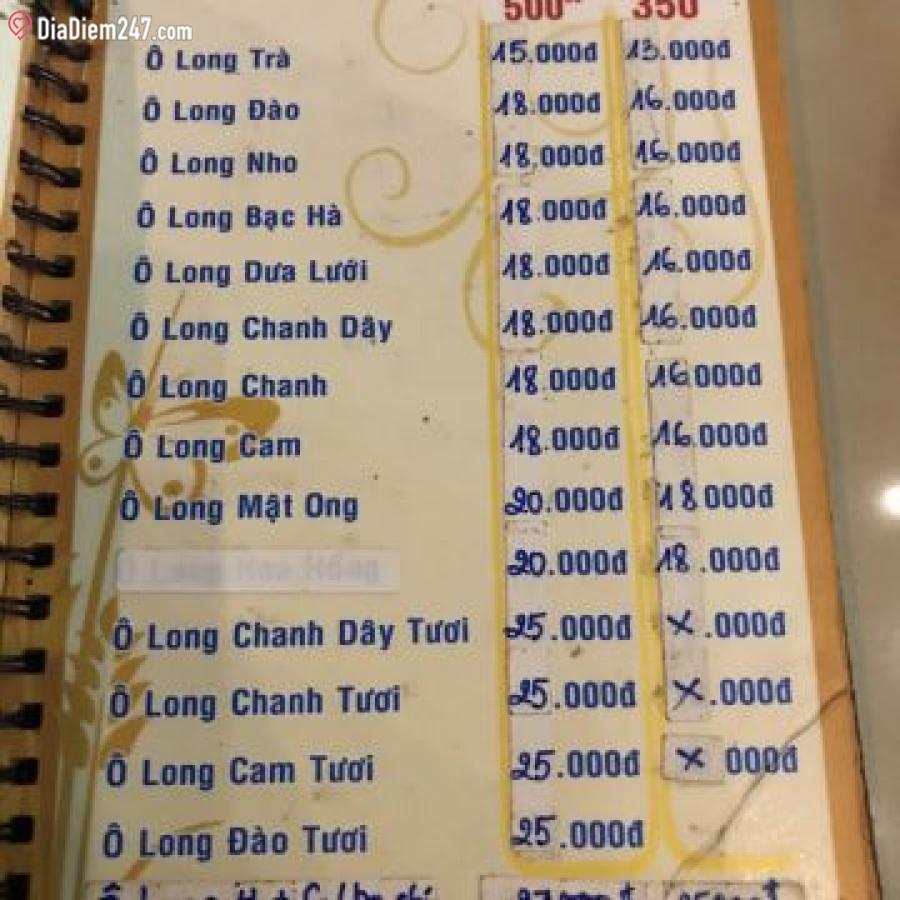 DiaDiem247.com
500ml 350
Ô Long Trà 15.000đ 13.000đ
Ô Long Đào 18.000đ 16.000đ
Ô Long Nho 18.000đ 16.000đ
Ô Long Bạc Hà 18.000đ 16.000đ
Ô Long Dưa Lưới 18.000đ 16.000đ
Ô Long Chanh Dây 18.000đ 16.000đ
Ô Long Chanh 18.000đ 16 000đ
Ô Long Cam 18.000đ 16.000đ
Ô Long Mật Ong 20.000đ 18 000đ
Ô Long Hoa Hồng 20.000đ 18.000đ
Ô Long Chanh Dây Tươi 25.000đ x.000đ
Ô Long Chanh Tươi 25.000đ x.000đ
Ô Long Cam Tươi 25.000đ x 000đ
Ô Long Đào Tươi 25.000đ
Ô Long